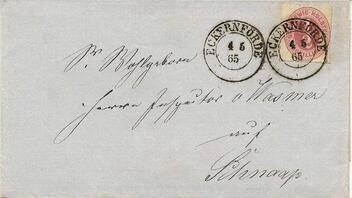 ECKERNFÖRDE
4 5
65
ECKERNFÖRDE
4 5
65
Sr. Wohlgeborn
Herrn Inspector v Wasmer
auf
Schnaap.